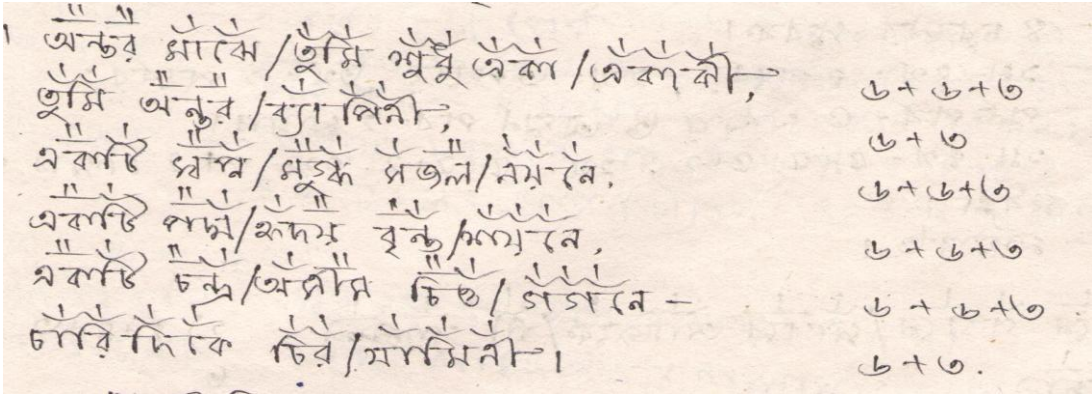 অন্তর মাঝে/তুমি শুধু একা/একাকী, ৬+৬+৩
তুমি অন্তর/ব্যাপিনী, ৬+৩
একটি স্বপ্ন/মুগ্ধ সজল/নয়নে, ৬+৬+৩
একটি পদ্ম/হৃদয় বৃন্ত/শয়নে, ৬+৬+৩
একটি চন্দ্র/অসীম চিত্ত/গগনে – ৬+৬+৩.
চারিদিকে চির/যামিনী। ৬+৩.